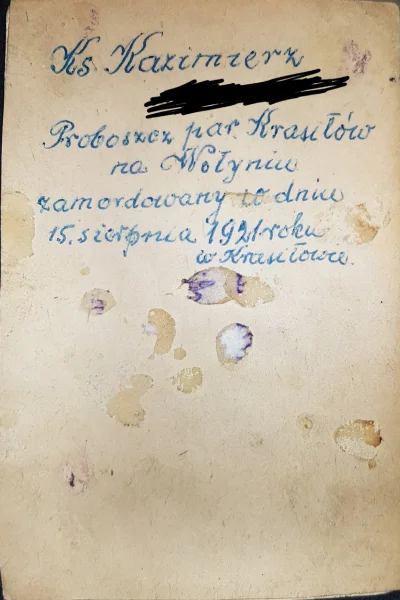 Ks. Kazimierz
Proboszcz par. Krasiłów
na Wołyniu
zamordowany w dniu
15. sierpnia 1921 roku
w Krasiłowie.